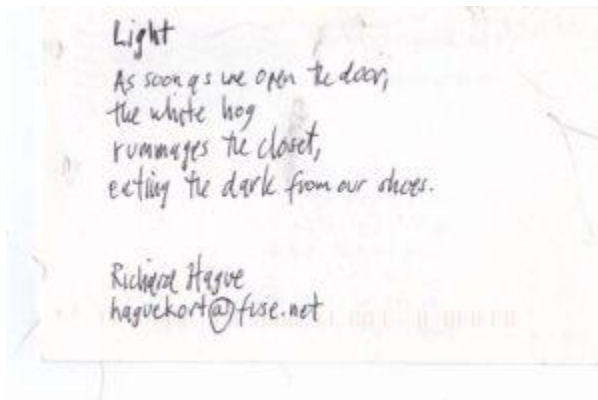 Light
As soon as we open the door,
the white hog
rummages the closet,
eating the dark from our shoes.
Richard Hague
haguekort@fuse.net